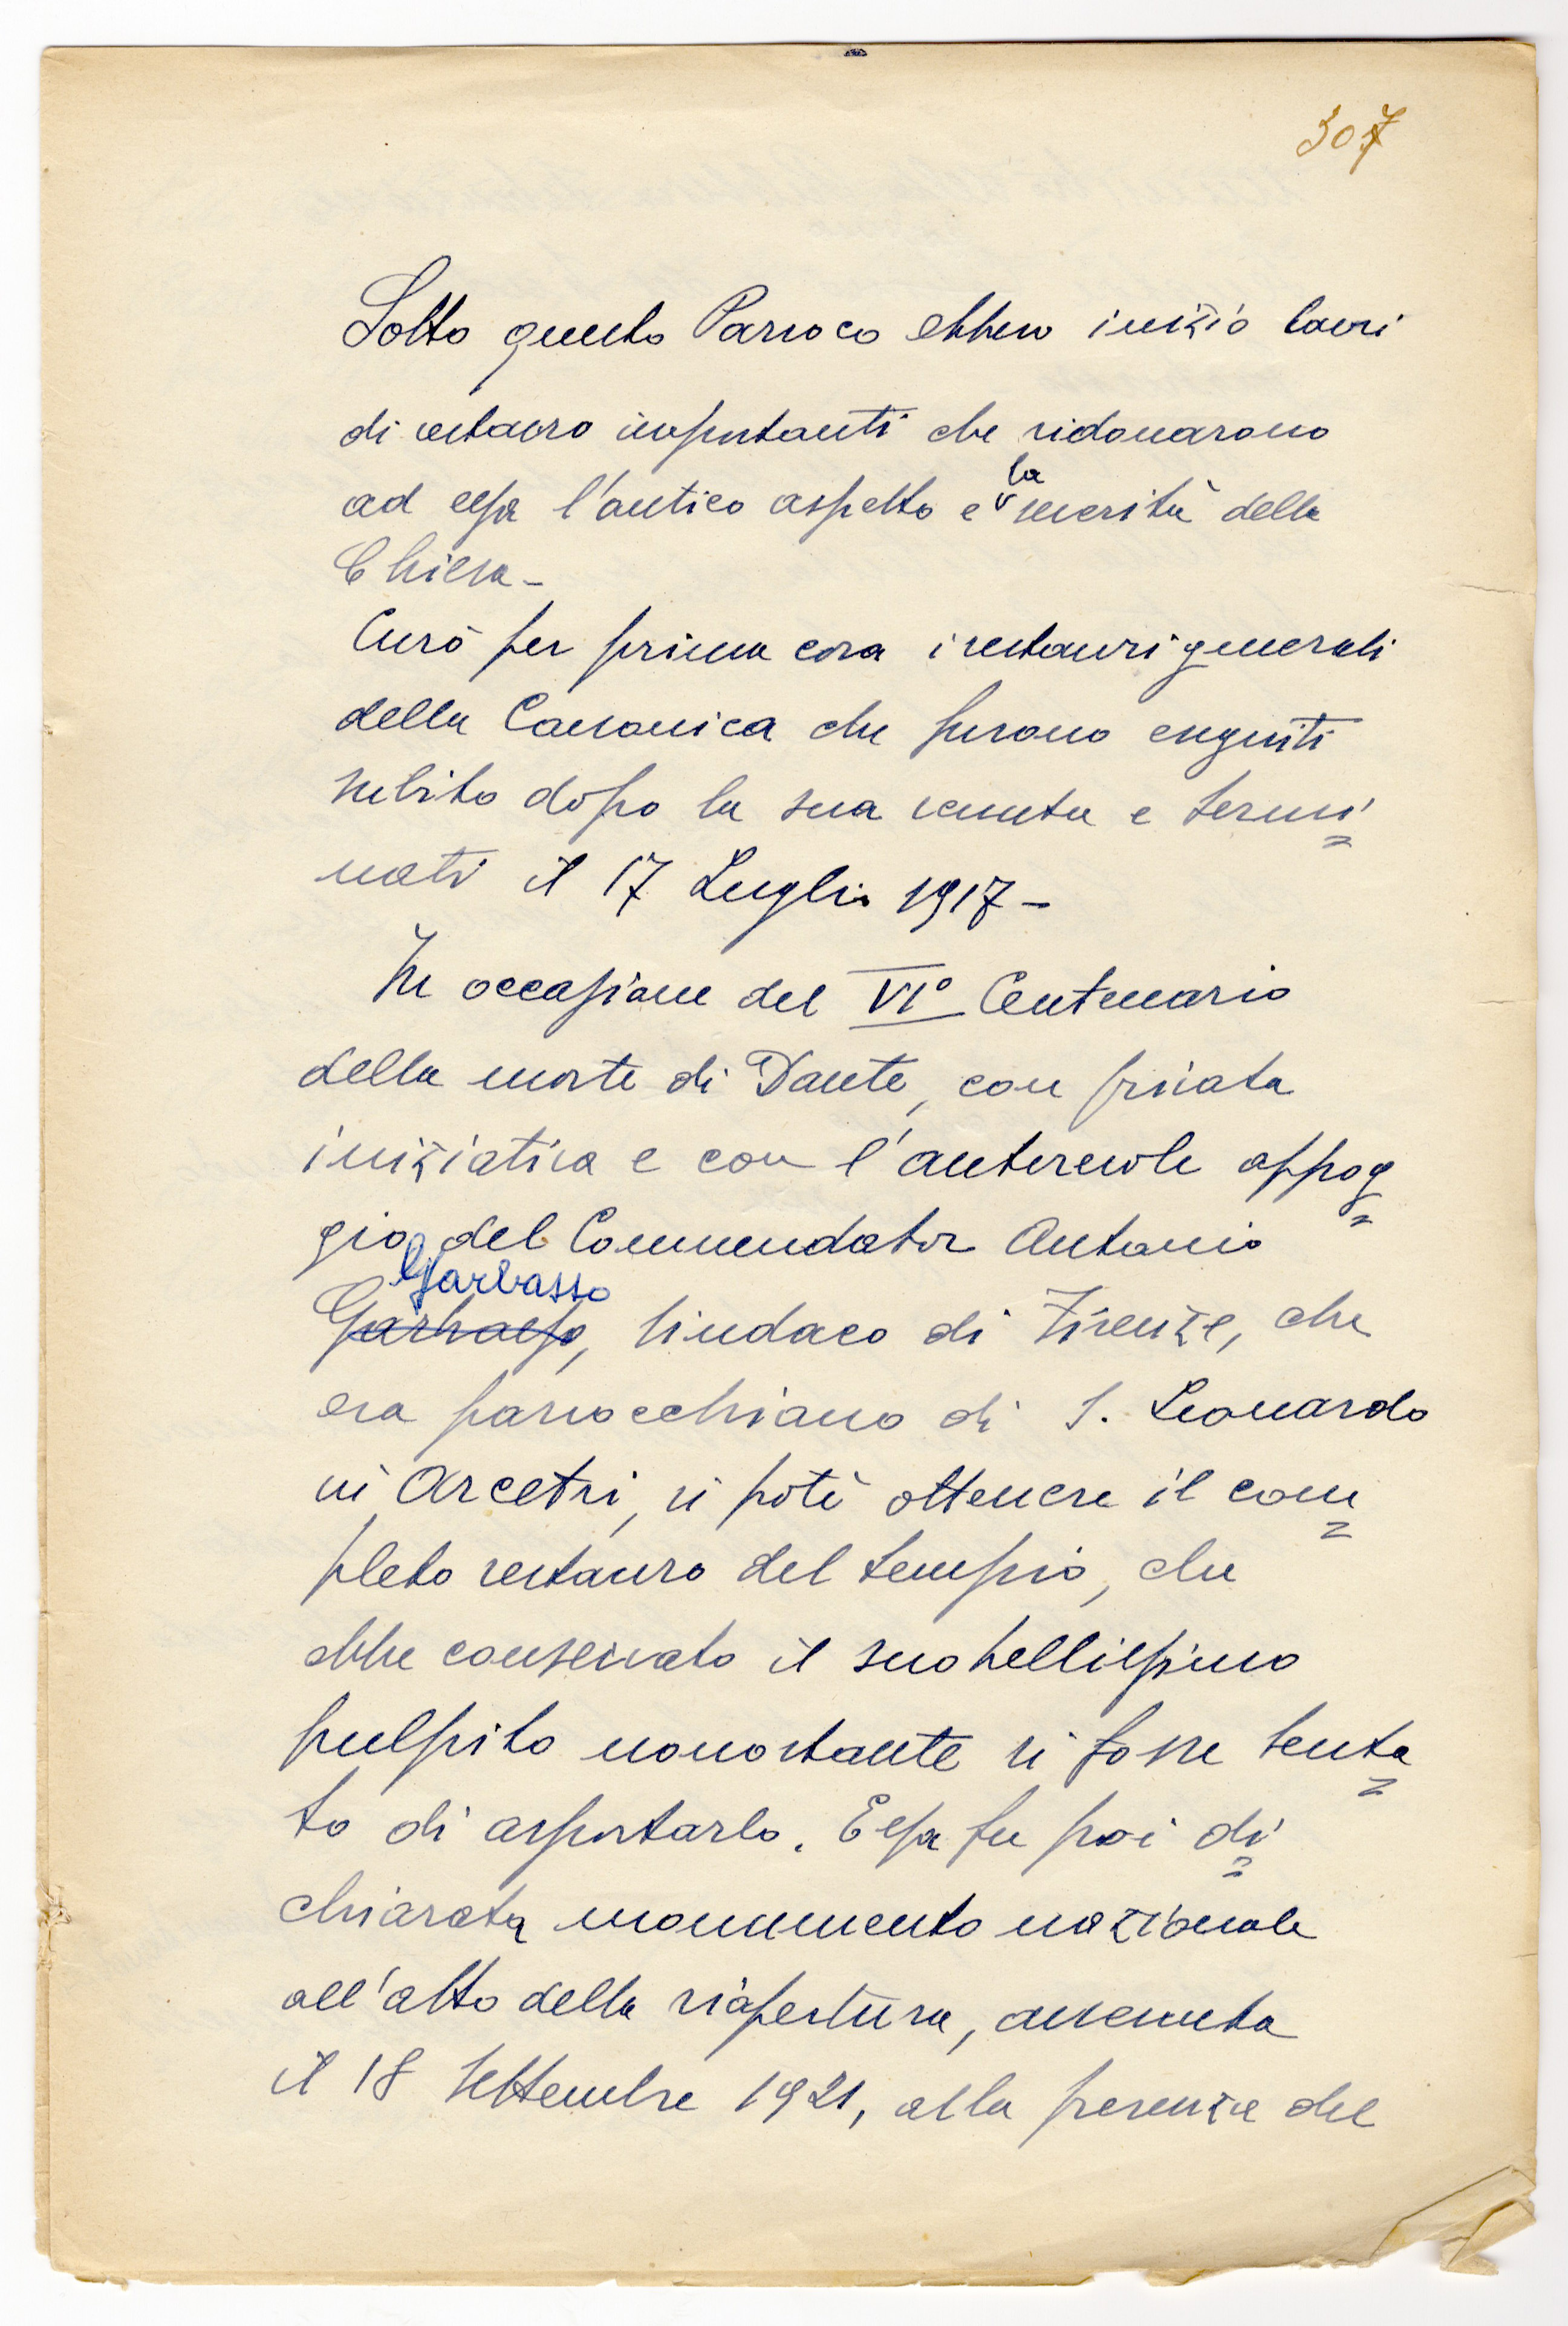 307
Sotto questo Parroco ebbero inizio lavori
di restauro importanti che ridonarono
ad essa l'antico aspetto e la serietà della
Chiesa -
Curò per prima cosa i restauri generali
della Canonica che furono eseguiti
subito dopo la sua venuta e termi=
nati il 17 Luglio 1917 -
In occasione del VI° Centenario
della morte di Dante, con privata
iniziativa e con l'autorevole appog=
gio del Commendator Antonio
Garbasso
Garbasso, Sindaco di Firenze, che
era parrocchiano di S. Leonardo
in Arcetri, si potè ottenere il com=
pleto restauro del tempio, che
ebbe conservato il suo bellissimo
pulpito nonostante si fosse tenta=
to di asportarlo. Essa fu poi di=
chiarata monumento nazionale
all'atto della riapertura, avvenuta
il 18 Settembre 1921, alla presenza del